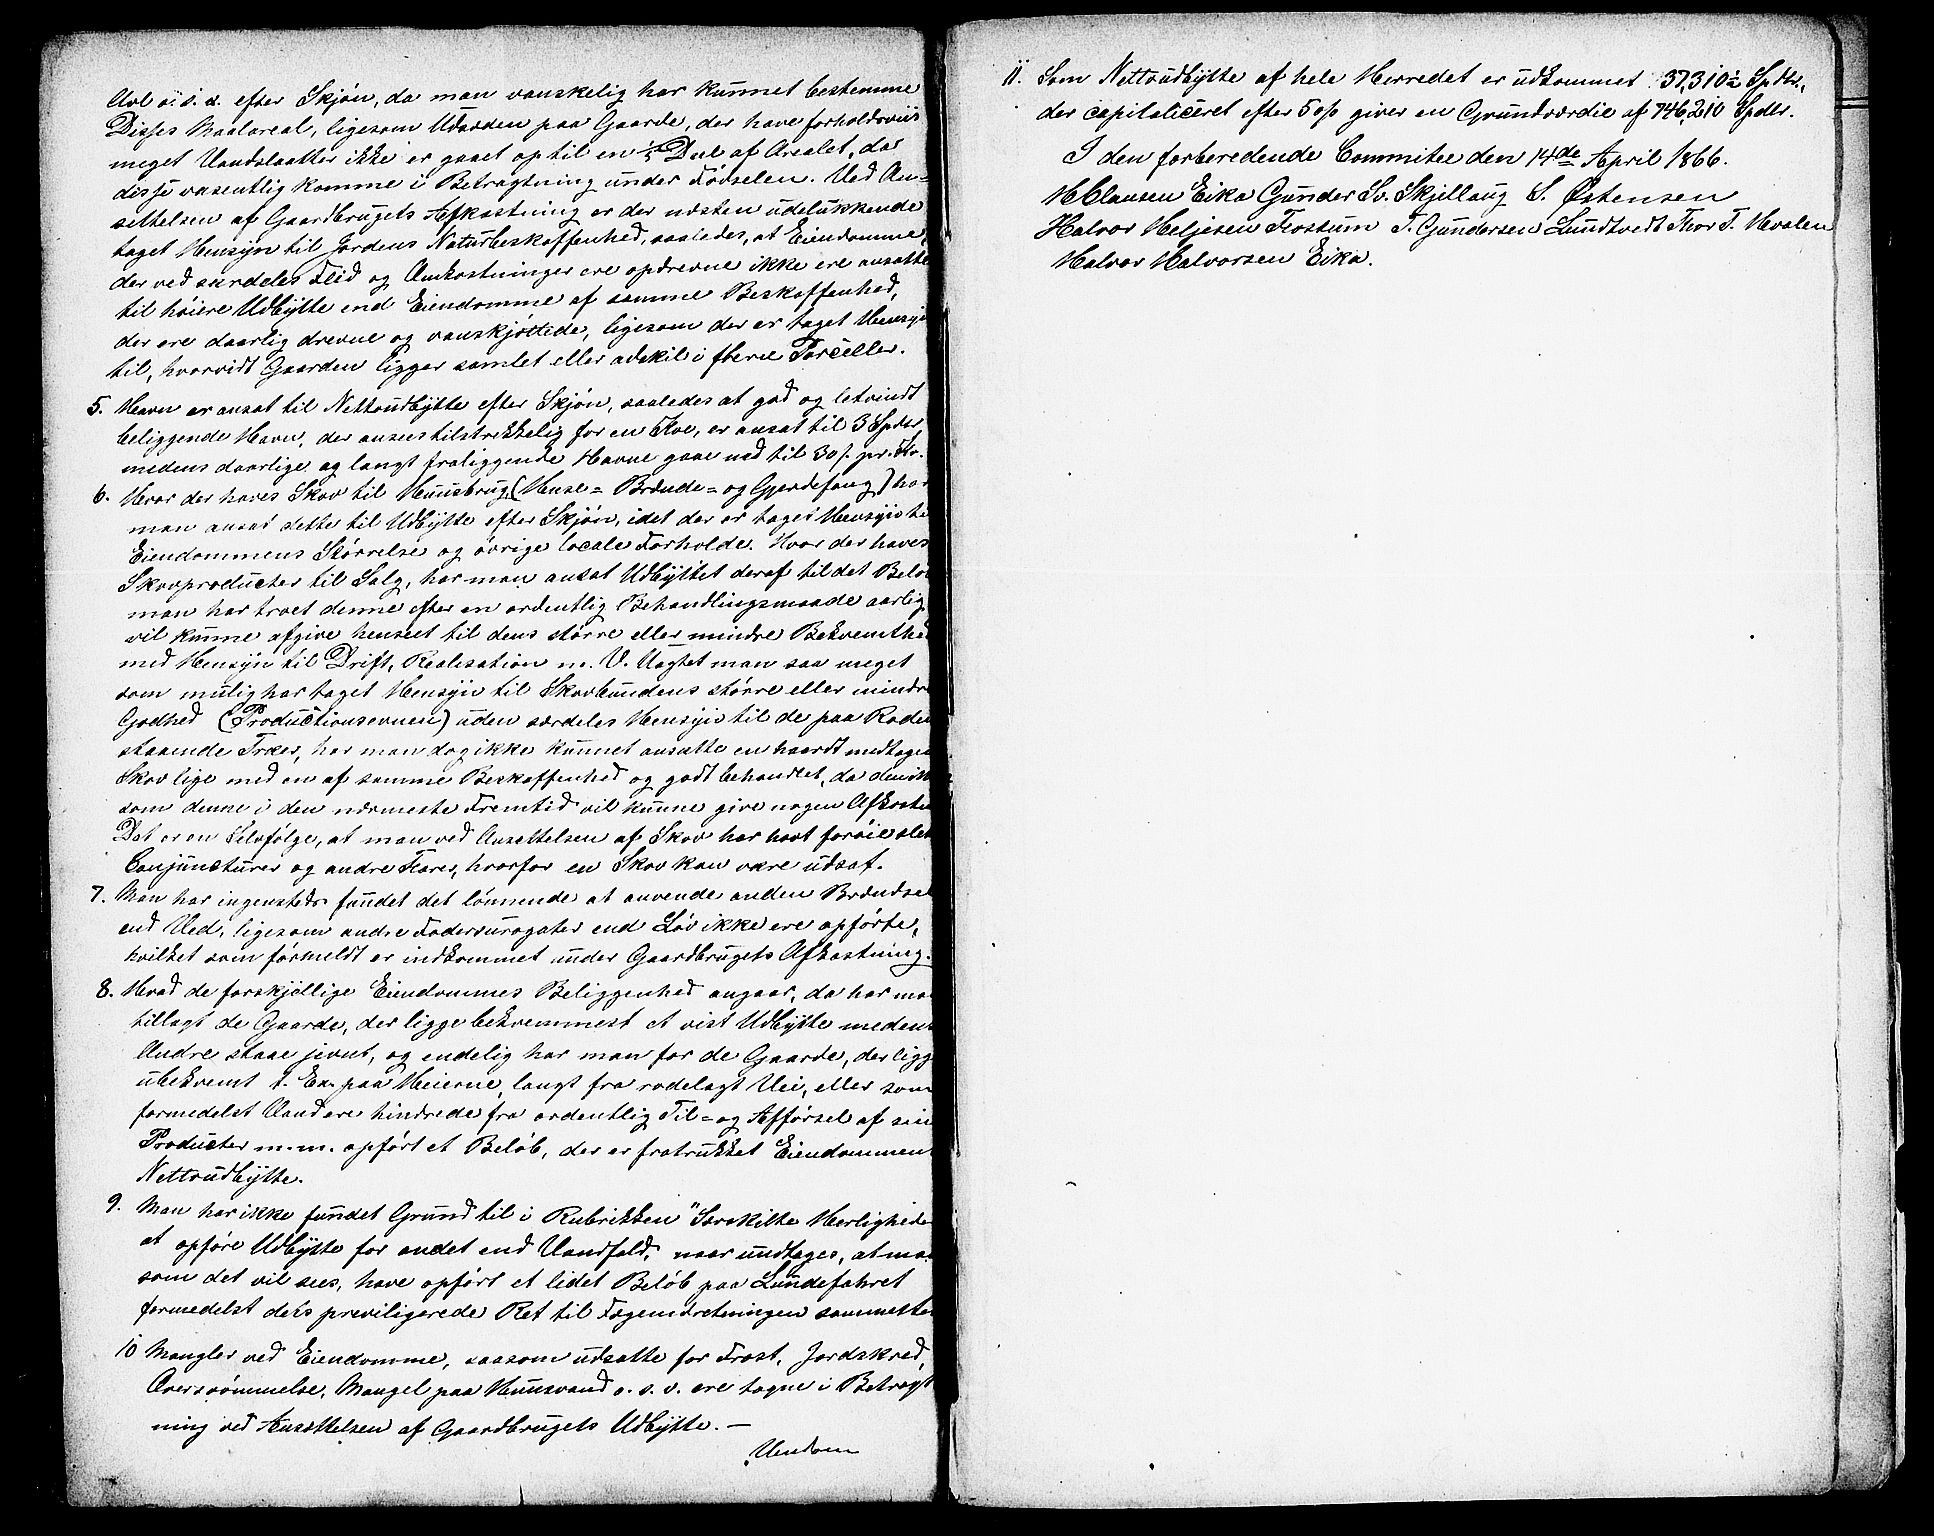 Avl o: s. a. efter Skjøn, da man vanskelig har kunnet bestemme
Disses Maalareal, ligesom Udsæden paa Gaarde, der have forholdsviis
meget Vandslaatter ikke er gaaet op til en 1/5 Deel af Arealet, da
disse væsentlig komme i Betragtning under Fødselen. Ved An-
settelsen af Gaardbrugets Afkastning er der næsten udelukkende
taget Hensyn til Jordens Naturbeskaffenhed, saaledes, at Eiendomme,
der ved særdeles Flid og Omkostninger ere opdrevne ikke ere ansatte
til høiere Udbytte end Eiendomme af samme Beskaffenhed,
der ere daarlig drevne og vanskjøttede, ligesom der er taget Hensyn
til, hvorvidt Gaarden ligger samlet eller adskil i flere Parceller.
5. Havn er ansat til Nettoudbytte efter Skjøn, saaledes at god og letvindt
beliggende Havn, der ansees tilstrekkelig for en Koe, er ansat til 3 Spdlr,
medens daarlige og langt fraliggende Havne gaae ned til 30 ſ. pr. Ko.
6. Hvor der haves Skov til Huusbrug (Huse= Brænde= og Gjerdefang) har
man ansat dette til Udbytte efter Skjøn, idet der er taget Hensyn til
Eiendommens Størrelse og øvrige locale Forholde. Hvor der haves
Skovproducter til Salg, har man ansat Udbyttet deraf til det Beløb
man har troet denne efter en ordentlig Behandlingsmaade aarlig
vil kunne afgive henseet til dens større eller mindre Bekvemthed
med Hensyn til Drift, Realisation m. V. Uagtet man saa meget
som mulig har taget Hensyn til Skovbundens større eller mindre
Godhed (Productionsevnen) uden særdeles Hensyn til de paa Roden
staaende Træer, har man dog ikke kunnet ansætte en haardt medtagen
Skov lige med en af samme Beskaffenhed og godt behandlet, da den ikke
som denne i den nærmeste Fremtid vil kunne give nogen Afkastn
Det er en Selvfølge, at man ved Ansettelsen af Skov har havt forøie slet
Conjuncturer og andre Farer, hvorfor en Skov kan være udsat.
7. Man har ingensteds fundet det lønnende at anvende anden Brændsel
end Ved, ligesom andre Fodersurogater end Løv ikke ere opførte,
hvilket som førmeldt er indkommet under Gaardbrugets Afkastning.
8. Hvad de forskjellige Eiendommes Beliggenhed angaar, da har ma
tillagt de Gaarde, der ligge bekvemmest et vist Udbytte medens
Andre staae jevnt, og endelig har man for de Gaarde, der ligge
ubekvemt t. Ex. paa Heierne, langt fra rodelagt Vei, eller som
formedelst Vand ere hindrede fra ordentlig Til= og Afførsel af sine
Producter m.m. opført et Beløb, der er fratrukket Eiendommens
Nettoudbytte.
9. Man har ikke fundet Grund til i Rubrikken "Særskilte Herligheder
at opføre Udbytte for andet end Vandfald, naar undtages, at man
som det vil sees, have opført et lidet Beløb paa Lundefahret
formedelst dets previligerede Ret til Færgeindretningen sammesteds
10 Mangler ved Eiendomme, saasom udsatte for Frost, Jordskred,
Oversvømmelse, Mangel paa Huusvand o. s. v. ere tagne i Betragt
ning ved Ansættelsen af Gaardbrugets Udbytte. —
11. Som Nettoudbytte af hele Herredet er udkommet 37,310½ Spdlr.,
der capitaliceret efter 5 o/o giver en Grundværdie af 746,210 Spdlr.
I den forberedende Commitee den 14de April 1866.
H Clausen Eika Gunder Sv. Skjellaug S. Østensen
Halvor Heljesen Frostum T. Gundersen Lundtvedt Thor T. Hvalen
Halvor Halvorsen Eika.